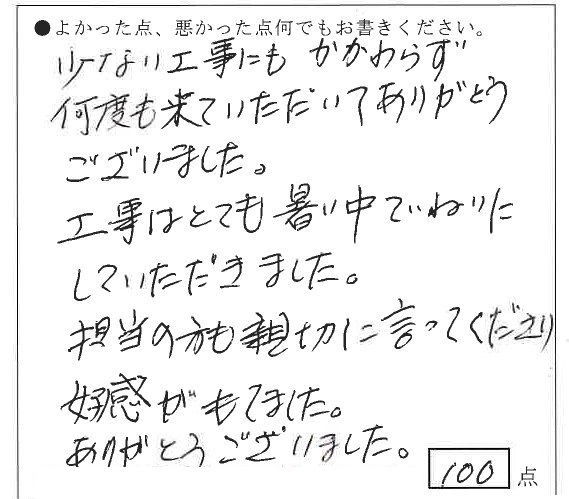 ●よかった点、悪かった点何でもお書きください。
少ない工事にもかかわらず
何度も来ていただいてありがとう
ございました。
工事はとても暑い中ていねいに
していただきました。
担当の方も親切に言ってくださり
好感がもてました。
ありがとうございました。
100点